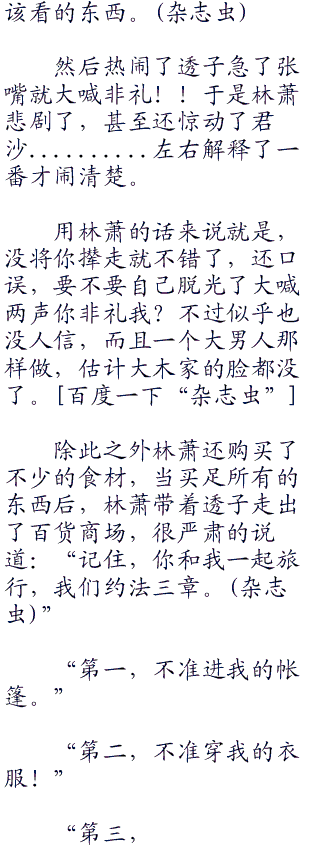 该看的东西。(杂志虫)
然后热闹了透子急了张
嘴就大喊非礼！！于是林萧
悲剧了，甚至还惊动了君
沙..........左右解释了一
番才闹清楚。
用林萧的话来说就是，
没将你撵走就不错了，还口
误，要不要自己脱光了大喊
两声你非礼我？不过似乎也
没人信，而且一个大男人那
样做，估计大木家的脸都没
了。[百度一下“杂志虫”]
除此之外林萧还购买了
不少的食材，当买足所有的
东西后，林萧带着透子走出
了百货商场，很严肃的说
道：“记住，你和我一起旅
行，我们约法三章。(杂志
虫)”
“第一，不准进我的帐
篷。”
“第二，不准穿我的衣
服！”
“第三，